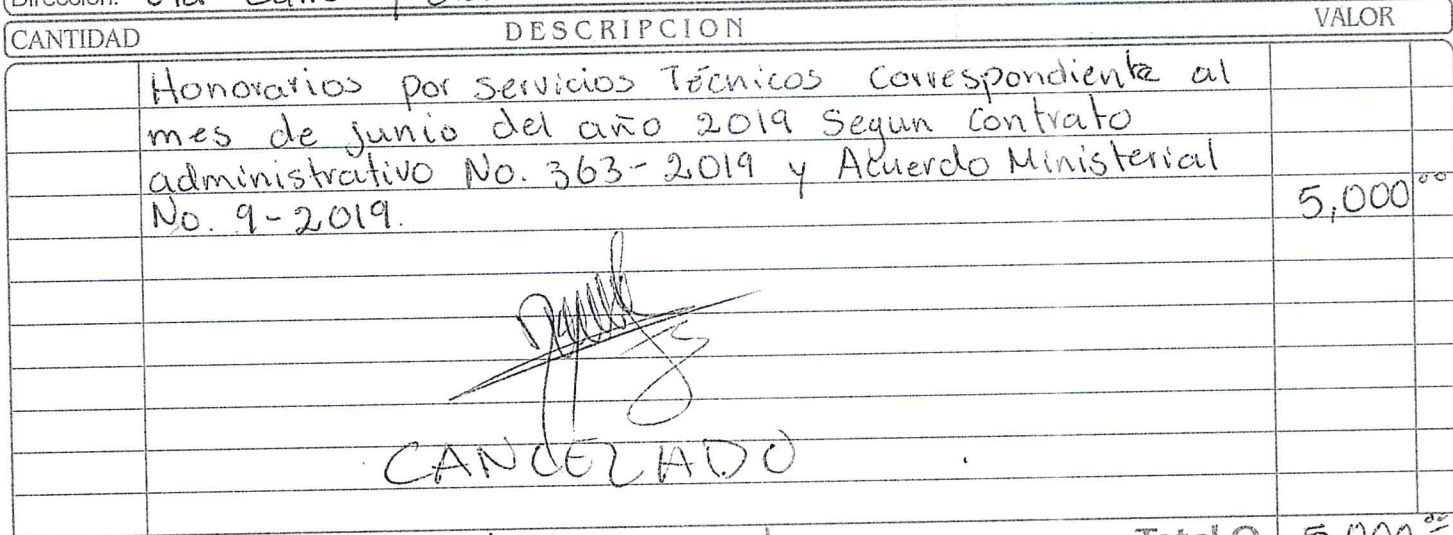 Dirección:
CANTIDAD DESCRIPCION VALOR
Honorarios por servicios Técnicos Correspondiente al
mes de junio del año 2019 Segun Contrato
administrativo No. 363-2019 y Acuerdo Ministerial
No. 9-2019. 5,000.00
CANCELADO
Total Q 5,000.00